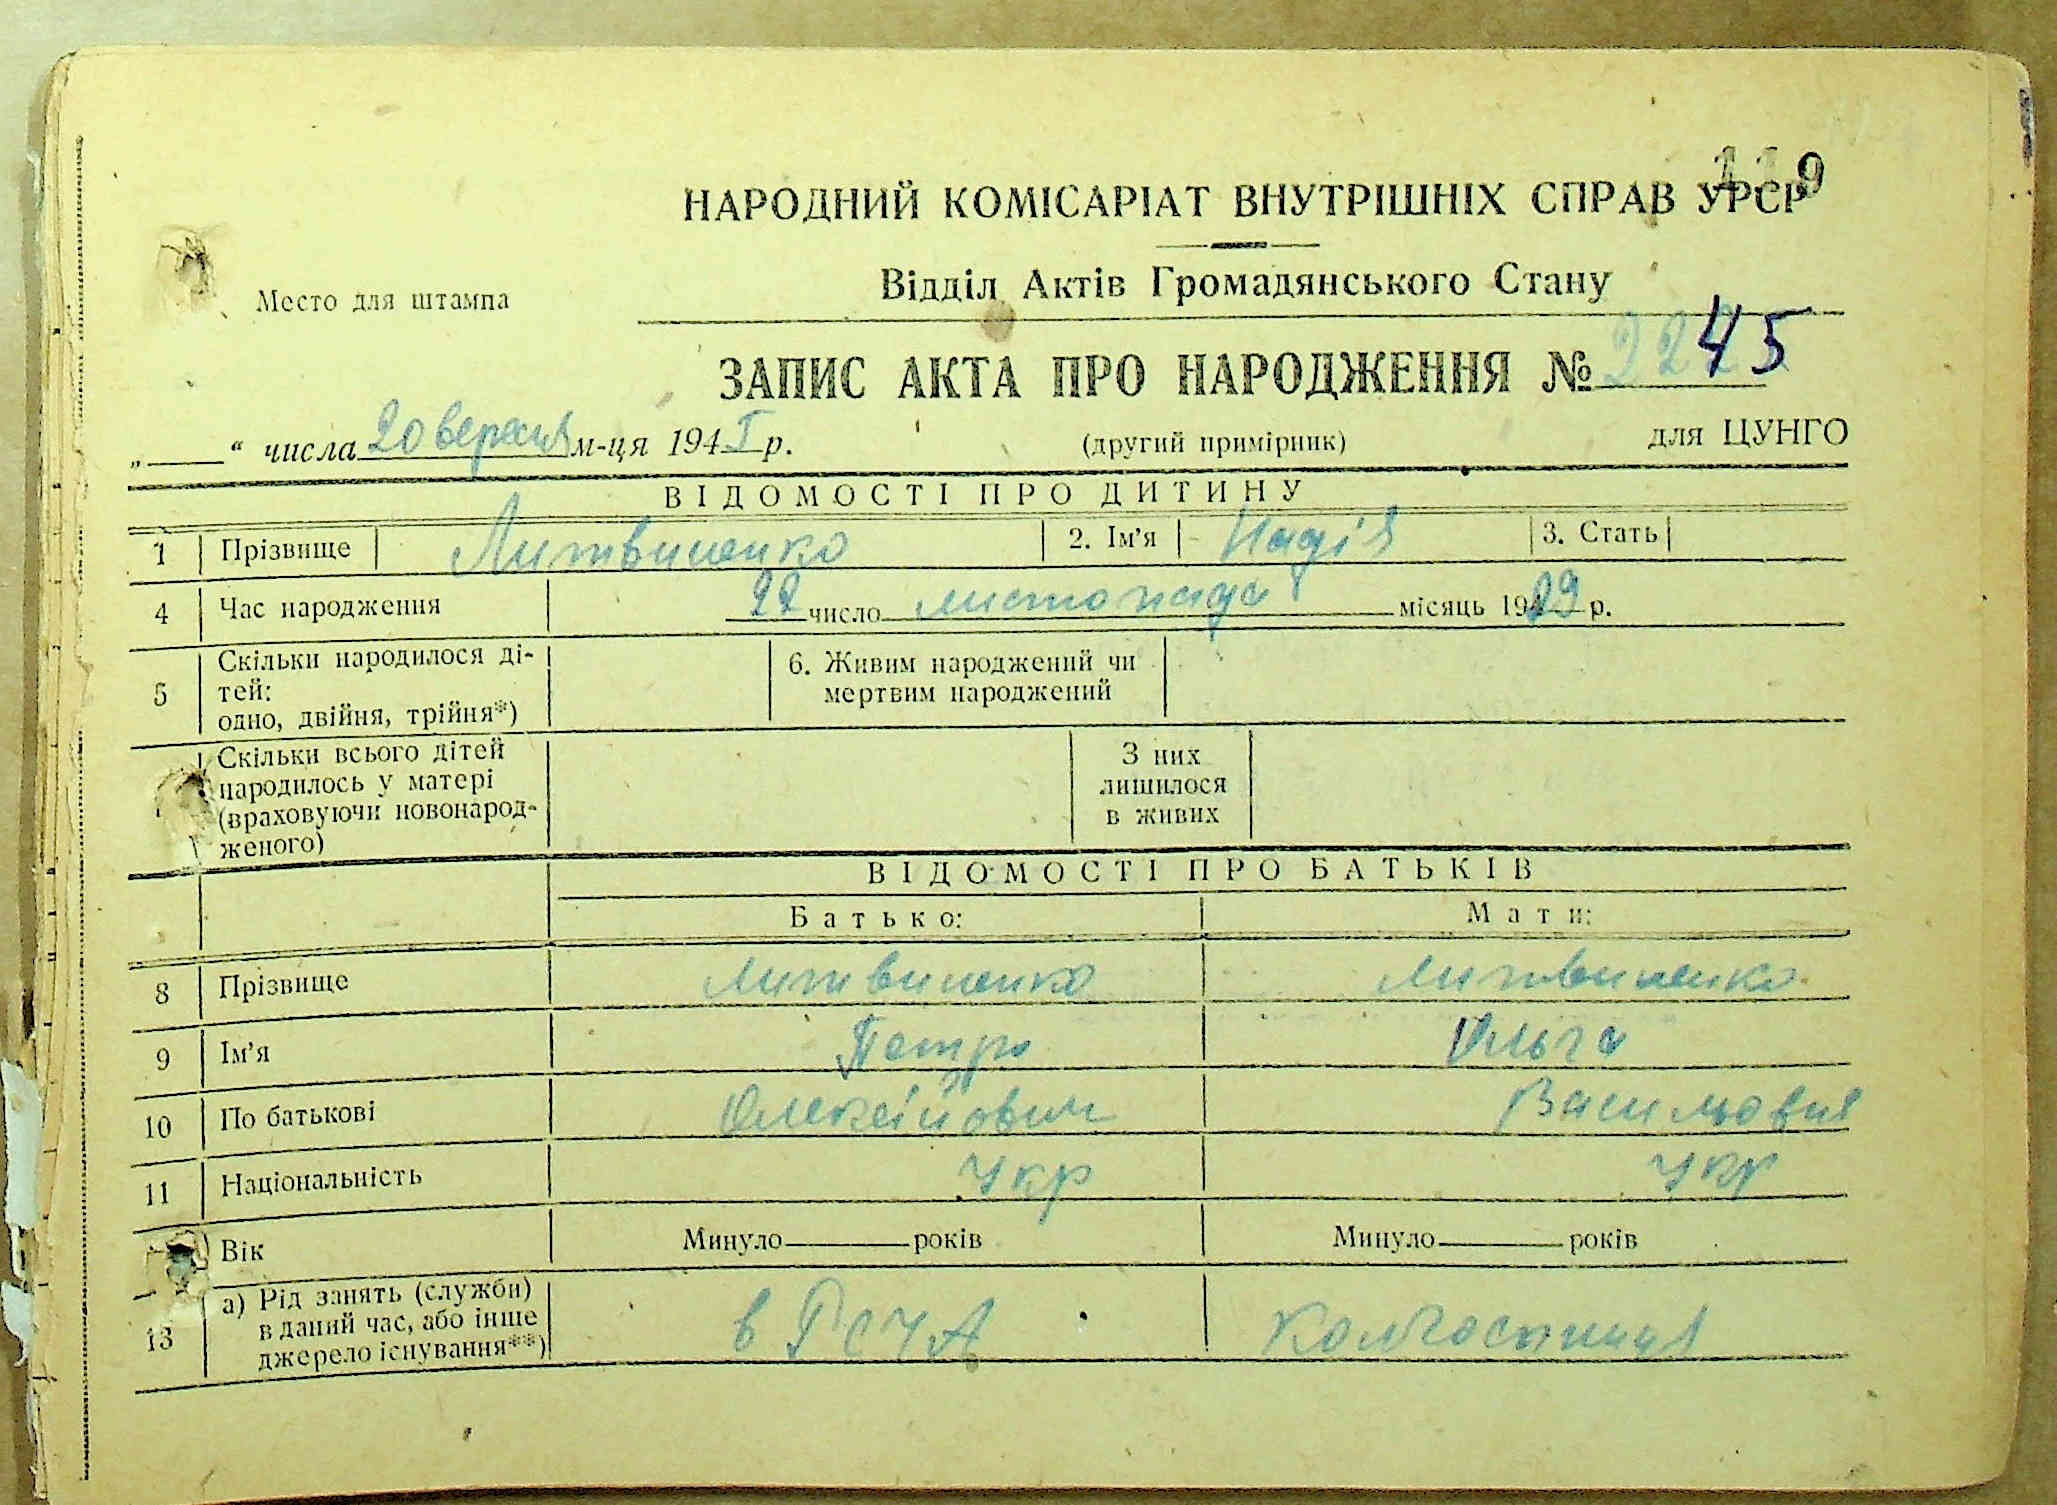 119
НАРОДНИЙ КОМІСАРІАТ ВНУТРІШНІХ СПРАВ УРСР
Место для штампа
Відділ Актів Громадянського Стану
ЗАПИС АКТА ПРО НАРОДЖЕННЯ № 45
„ “ числа 20 вересня м-ця 194І р. (другий примірник) для ЦУНГО
ВІДОМОСТІ ПРО ДИТИНУ
1 Прізвище Литвиненко 2. Ім'я Надія 3. Стать
4 Час народження 22 число листопада місяць 1929 р.
5 Скільки народилося ді-
тей:
одно, двійня, трійня*)
6. Живим народжений чи
мертвим народжений
Скільки всього дітей
народилось у матері
(враховуючи новонарод-
женого)
З них
лишилося
в живих
ВІДОМОСТІ ПРО БАТЬКІВ
Батько: Мати:
8 Прізвище Литвиненко Литвиненко
9 Ім'я Петро Ольга
10 По батькові Олексійович Василовня
11 Національність Укр Укр
Вік Минуло років Минуло років
13 а) Рід занять (служби)
в даний час, або інше
джерело існування**)
в РСЧА колгоспниця